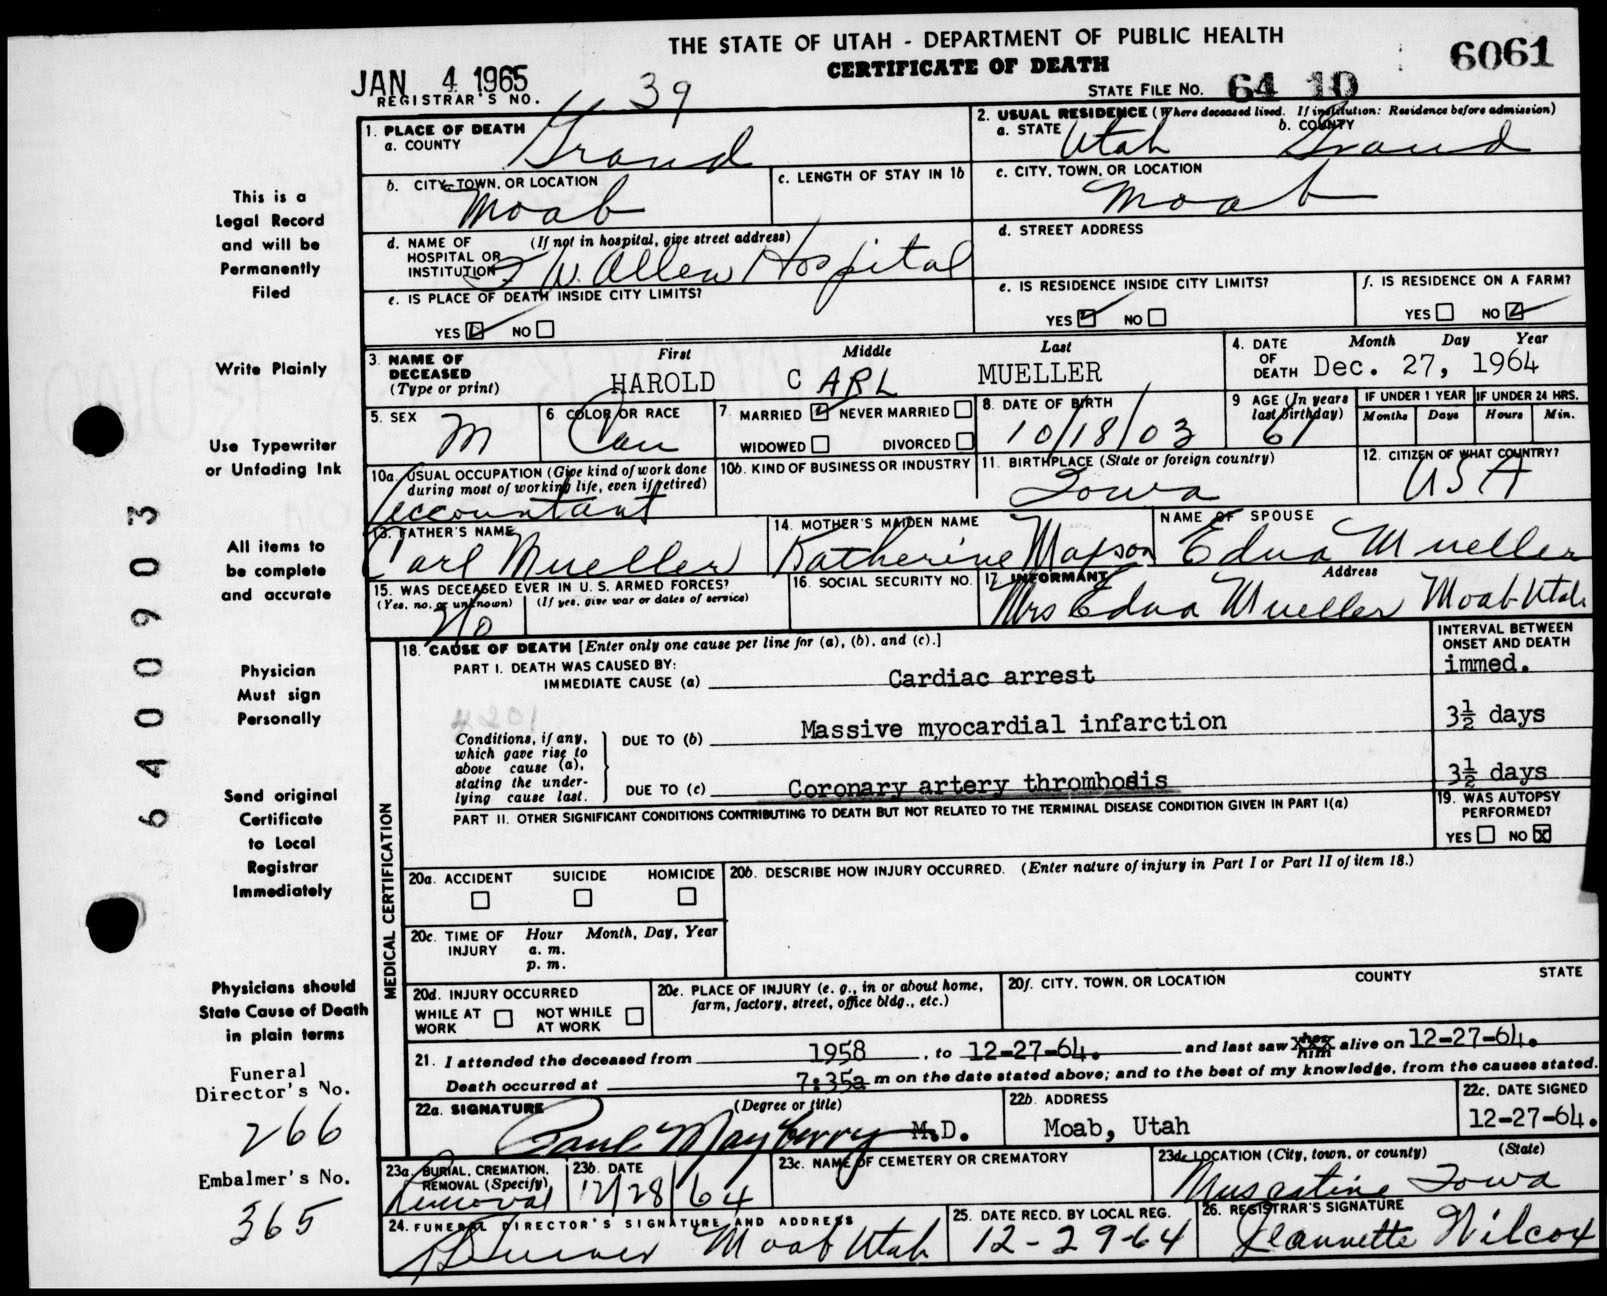 THE STATE OF UTAH - DEPARTMENT OF PUBLIC HEALTH
CERTIFICATE OF DEATH
6061
JAN 4 1965
REGISTRAR'S NO. 39
STATE FILE NO. 64 10
1. PLACE OF DEATH
a. COUNTY
Grand
2. USUAL RESIDENCE (Where deceased lived. If institution: Residence before admission)
a. STATE Utah b. COUNTY Grand
b. CITY, TOWN, OR LOCATION
Moab
c. LENGTH OF STAY IN 1b
c. CITY, TOWN, OR LOCATION
Moab
d. NAME OF HOSPITAL OR INSTITUTION (If not in hospital, give street address)
W. Allen Hospital
d. STREET ADDRESS
e. IS PLACE OF DEATH INSIDE CITY LIMITS?
YES NO
e. IS RESIDENCE INSIDE CITY LIMITS?
YES NO
f. IS RESIDENCE ON A FARM?
YES NO
3. NAME OF DECEASED (Type or print)
First Middle Last
HAROLD CARL MUELLER
4. DATE OF DEATH Month Day Year
Dec. 27, 1964
5. SEX
M
6 COLOR OR RACE
Cau
7. MARRIED NEVER MARRIED
WIDOWED DIVORCED
8. DATE OF BIRTH
10/18/03
9 AGE (In years last birthday)
61
IF UNDER 1 YEAR
Months Days
IF UNDER 24 HRS.
Hours Min.
10a. USUAL OCCUPATION (Give kind of work done during most of working life, even if retired)
Accountant
10b. KIND OF BUSINESS OR INDUSTRY
11. BIRTHPLACE (State or foreign country)
Iowa
12. CITIZEN OF WHAT COUNTRY?
USA
13. FATHER'S NAME
Carl Mueller
14. MOTHER'S MAIDEN NAME
Katherine
NAME OF SPOUSE
Edna Mueller
15. WAS DECEASED EVER IN U.S. ARMED FORCES?
(Yes, no, or unknown) (If yes, give war or dates of service)
No
16. SOCIAL SECURITY NO.
17. INFORMANT Address
Mrs Edna Mueller Moab Utah
MEDICAL CERTIFICATION
18. CAUSE OF DEATH [Enter only one cause per line for (a), (b), and (c).]
INTERVAL BETWEEN ONSET AND DEATH
PART I. DEATH WAS CAUSED BY:
IMMEDIATE CAUSE (a) Cardiac arrest immed.
4201
Conditions, if any, which gave rise to above cause (a), stating the underlying cause last.
DUE TO (b) Massive myocardial infarction 3½ days
DUE TO (c) Coronary artery thrombosis 3½ days
PART II. OTHER SIGNIFICANT CONDITIONS CONTRIBUTING TO DEATH BUT NOT RELATED TO THE TERMINAL DISEASE CONDITION GIVEN IN PART I(a)
19. WAS AUTOPSY PERFORMED?
YES NO X
20a. ACCIDENT SUICIDE HOMICIDE
20b. DESCRIBE HOW INJURY OCCURRED. (Enter nature of injury in Part I or Part II of item 18.)
20c. TIME OF INJURY Hour Month, Day, Year
a. m.
p. m.
20d. INJURY OCCURRED
WHILE AT WORK NOT WHILE AT WORK
20e. PLACE OF INJURY (e. g., in or about home, farm, factory, street, office bldg., etc.)
20f. CITY, TOWN, OR LOCATION COUNTY STATE
21. I attended the deceased from 1958, to 12-27-64. and last saw xxx her him alive on 12-27-64.
Death occurred at 7:35a m on the date stated above; and to the best of my knowledge, from the causes stated.
22a. SIGNATURE (Degree or title)
Paul Mayberry M.D.
22b. ADDRESS
Moab, Utah
22c. DATE SIGNED
12-27-64.
23a. BURIAL, CREMATION, REMOVAL (Specify)
Removal
23b. DATE
12/28/64
23c. NAME OF CEMETERY OR CREMATORY
23d. LOCATION (City, town, or county) (State)
Muscatine Iowa
24. FUNERAL DIRECTOR'S SIGNATURE AND ADDRESS
Moab Utah
25. DATE RECD. BY LOCAL REG.
12-29-64
26. REGISTRAR'S SIGNATURE
Jeannette Wilcox
This is a
Legal Record
and will be
Permanently
Filed
Write Plainly
Use Typewriter
or Unfading Ink
All items to
be complete
and accurate
Physician
Must sign
Personally
Send original
Certificate
to Local
Registrar
Immediately
Physicians should
State Cause of Death
in plain terms
Funeral
Director's No.
266
Embalmer's No.
365
6400903